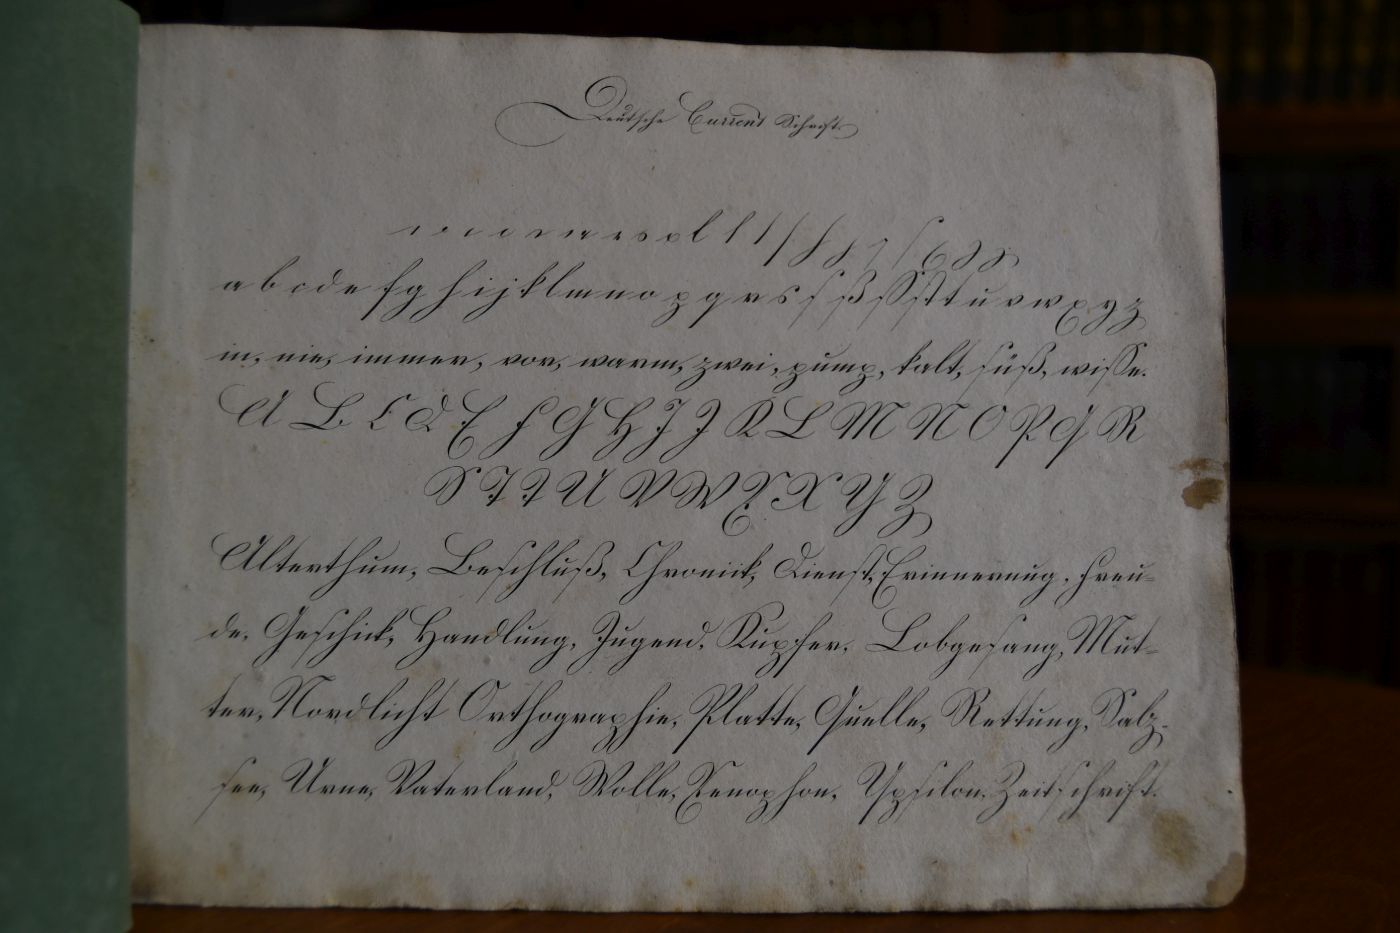 Deutsche Current Schrift.
a b c d e f g h i j k l m n o p q r s ſ ß ſſ ſt t u v w x y z
in, nie, immer, vor, warm, zwei, pump, kalt, ſüß, wiſſe.
A B C D E F G H I J K L M N O P Q R
S T T U V W X X Y Z
Alterthum, Beſchluß, Chronick, Dienſt, Erinnerung, Freu-
de, Geſchick, Handlung, Jugend, Kupfer, Lobgeſang, Mut-
ter, Nordlicht Orthographie, Platte, Quelle, Rettung, Salz-
ſee, Urne, Vaterland, Wolle, Xenophon, Ypſilon, Zeitſchrift.